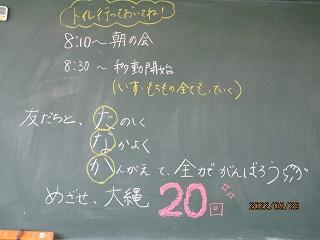 トイレ行っておいてね!
8:10〜朝の会
8:30〜移動開始
(いす・もちもの全てもっていく)
友だちと、たのしく
なかよく
かんがえて、全力がんばろう
めざせ、大縄20回
2022/05/28